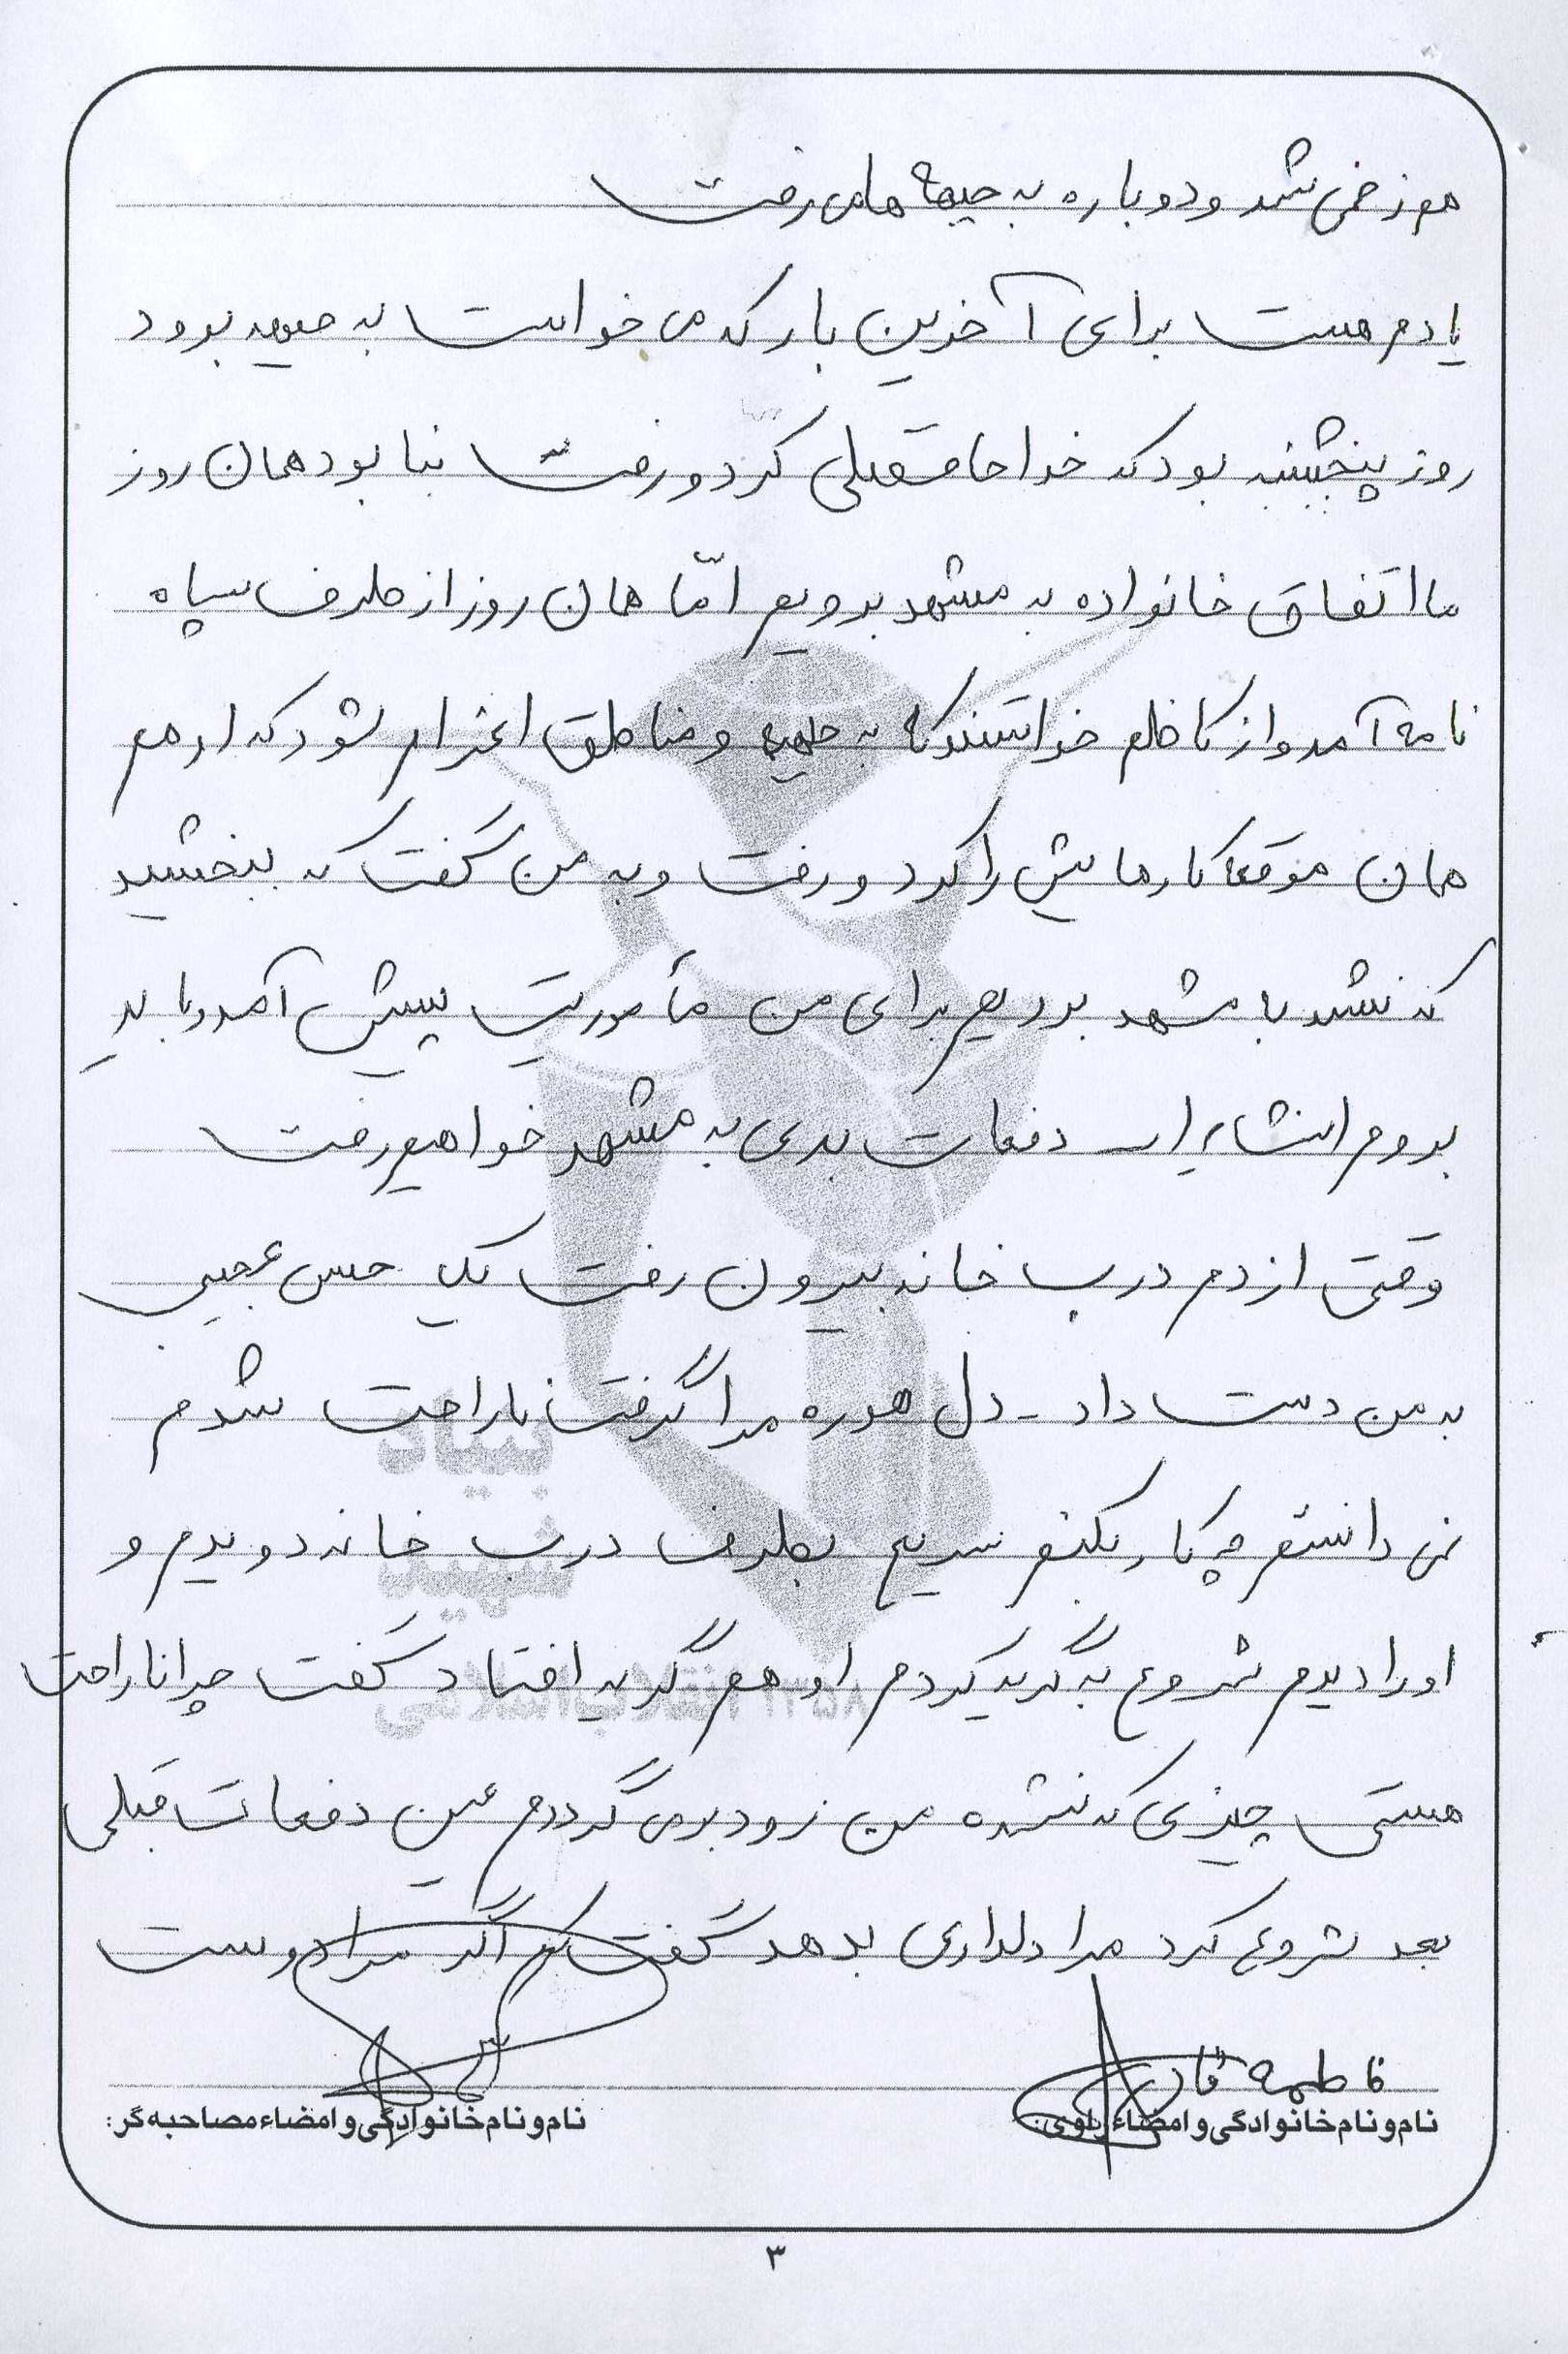 هم زخمی شد و دوباره به جبهه ها می رفت
یادم هست برای آخرین بار که می خواست به جبهه برود
روز پنجشنبه بود که خداحافظی کرد و رفت بنا بود همان روز
ما اتفاق خانواده به مشهد برویم امّا همان روز از طرف سپاه
نامه آمد و از کاظم خواستند که به جبهه و مناطق اعزام شود که او هم
همان موقع کارهایش را کرد و رفت و به من گفت که ببخشید
که نشد با مشهد برویم برای من مأموریت پیش آمد و باید
بروم انشاءالله دفعات بعدی به مشهد خواهیم رفت
وقتی از دم درب خانه بیرون رفت یک حس عجیبی
به من دست داد - دل هوره مرا گرفت ناراحت شدم
نمی دانستم چکار بکنم سریع بطرف درب خانه دویدم و
او را دیدم شروع به گریه کردم او هم گریه افتاد گفت چرا ناراحت
هستی چیزی که نشده من زود برمی گردم عین دفعات قبلی
بعد شروع کرد مرا دلداری بدهد گفت که اگر مرا دوست
فاطمه
نام و نام خانوادگی و امضاء راوی:
نام و نام خانوادگی و امضاء مصاحبه گر:
بنیاد
شهید
انقلاب اسلامی ۱۳۵۸
۳